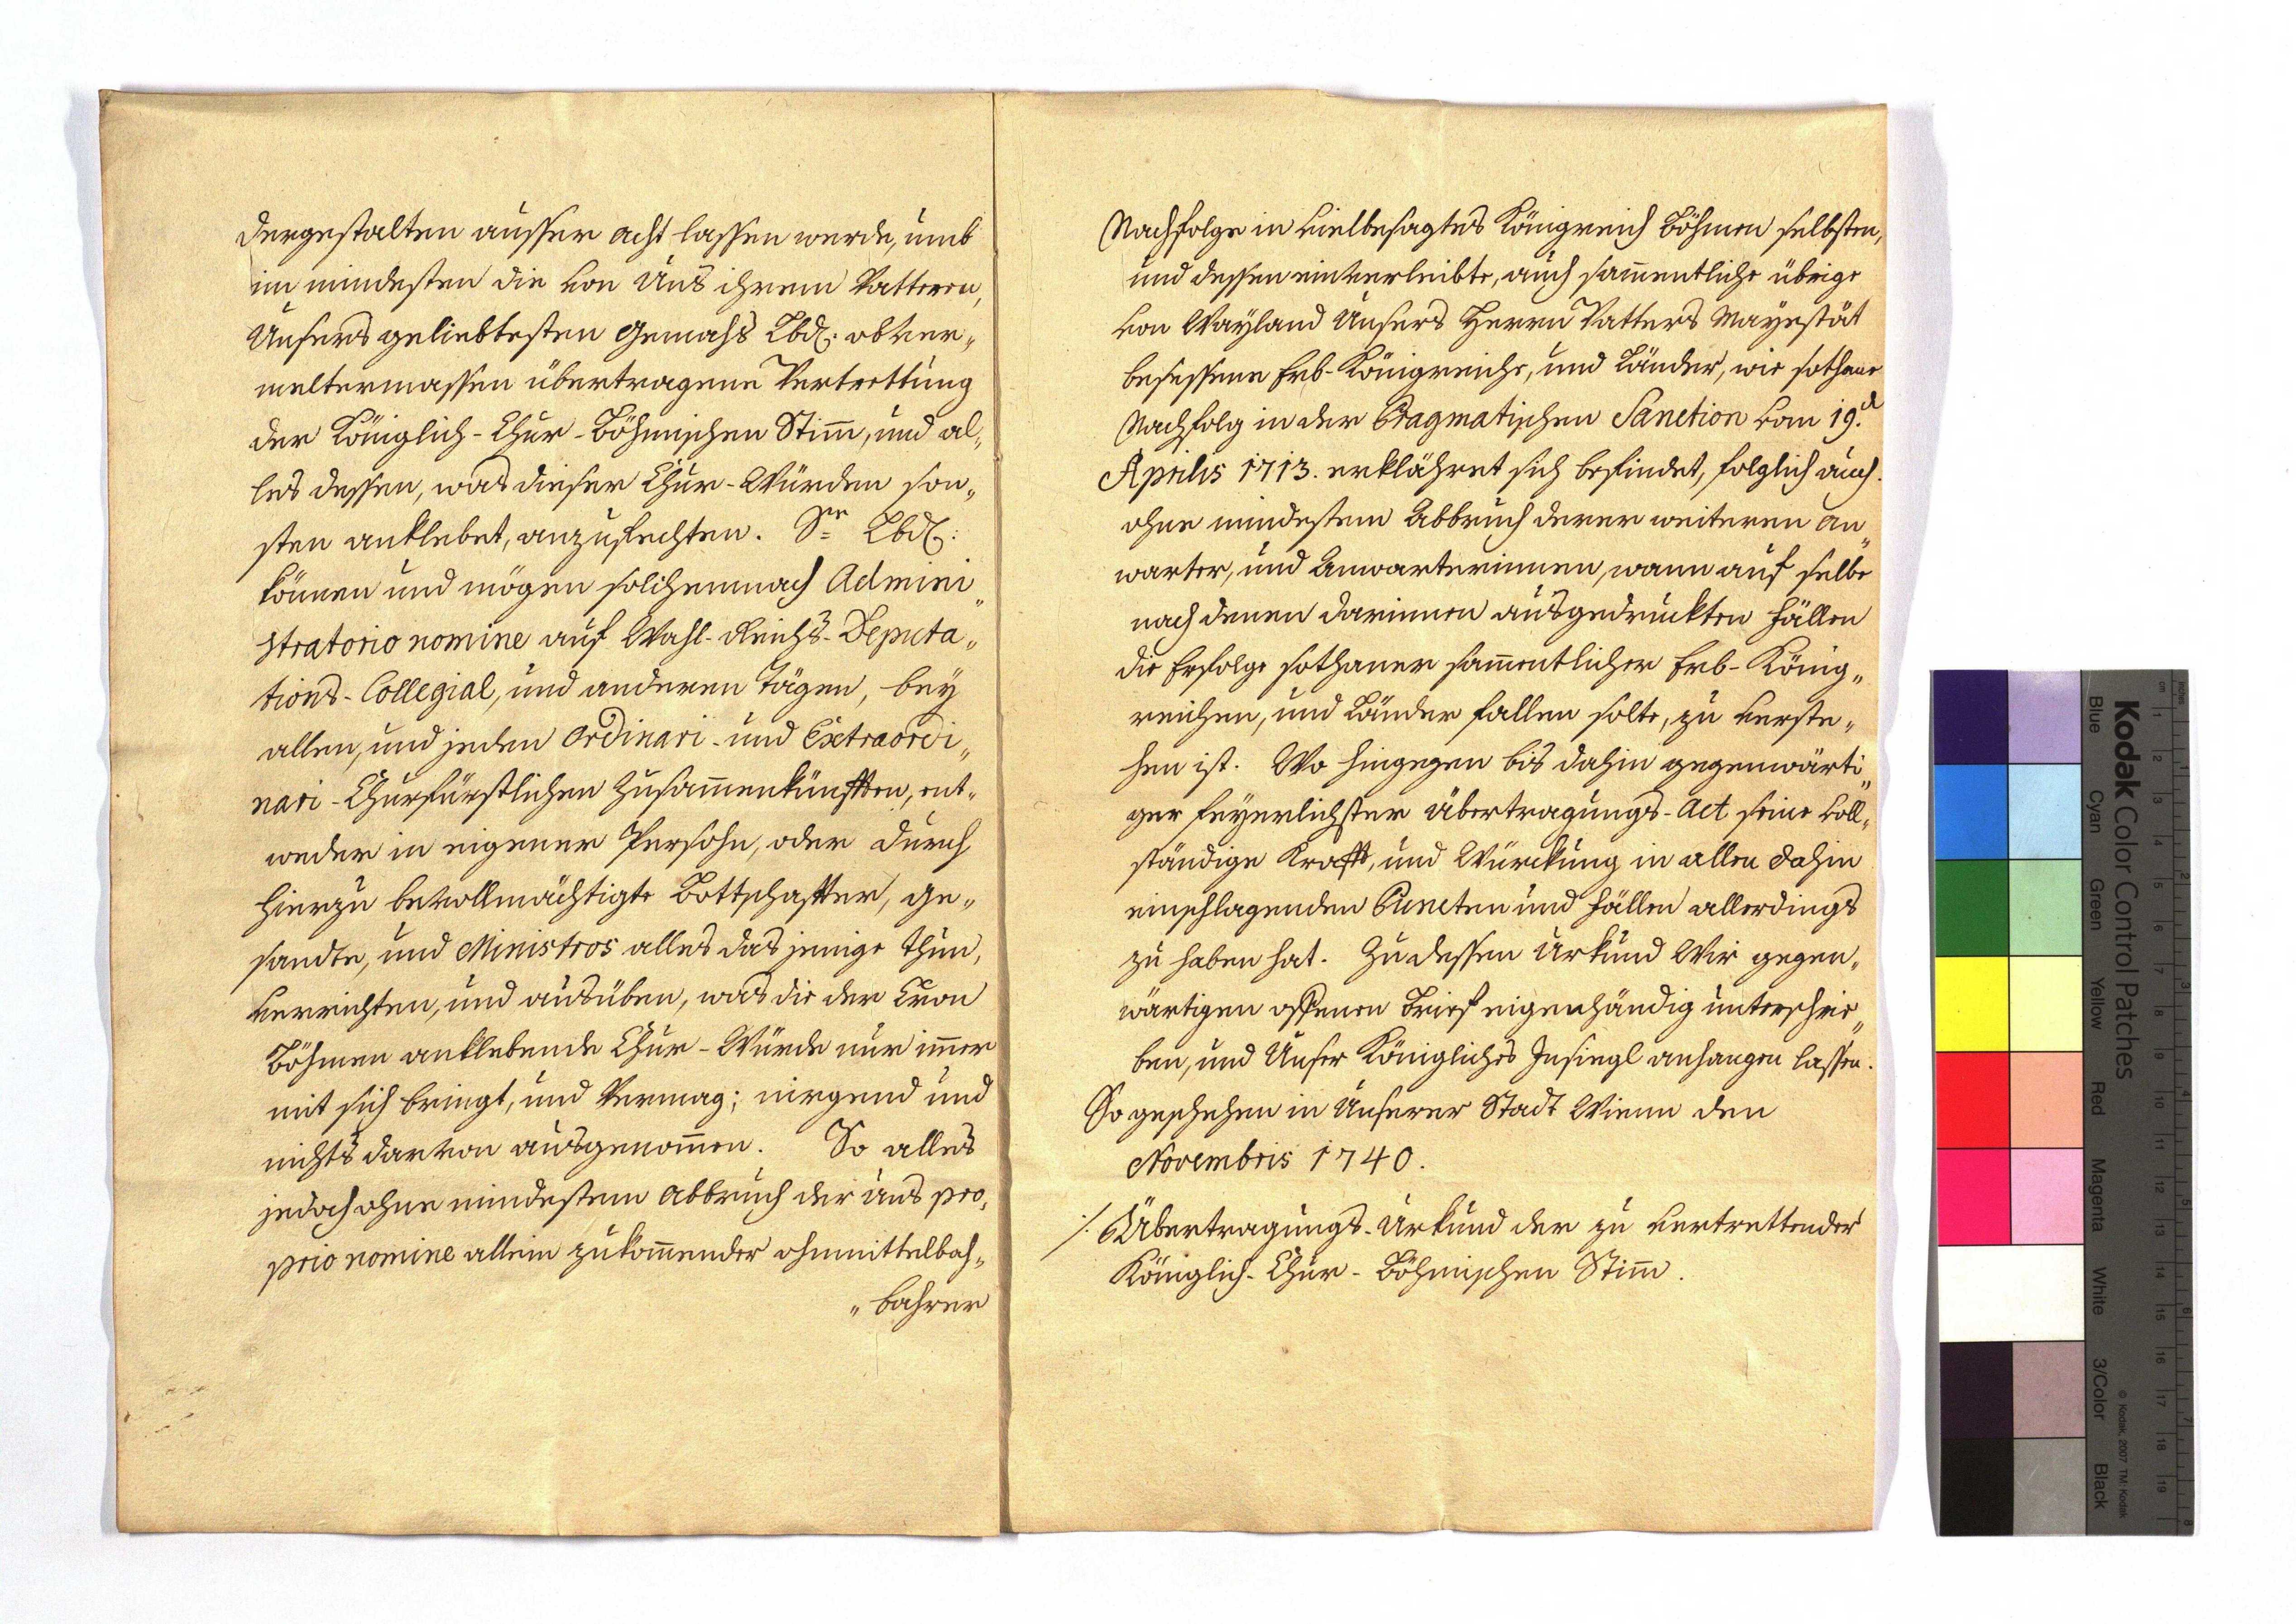 dergestalten ausser acht lassen werde, umb
im mindesten die von Uns ihrem Vatteren,
Unsers geliebtesten Gemahls Lbd. obver„
meltermassen übertragene Vertrettung
der Königlich-Chur-Böhmischen Stim̅, und al„
les dessen, was dieser Chur-Würden son„
sten anklebet, anzufechten. Sr Lbd:
können und mögen solchemnach Admini„
stratorio nomine auf Wahl-Reichs-Deputa„
tions-Collegial, und anderen Tägen, bey
allen, und jeden Ordinari- und Extraordi„
nari-Churfürstlichen Zusam̅enkünfften, ent„
weder in eigener Persohn, oder durch
hierzu bevollmächtigte Bottschaffter, ge„
sandte, und Ministros alles das jenige thun,
verrichten, und ausüben, was die der Cron
Böhmen anklebende Chur-Würde nur im̅er
mit sich bringt, und Vermag; nirgend und
nichts darvon ausgenom̅en. So alles
jedoch ohne mindestem Abbruch der Uns pro„
prio nomine allein zukom̅ender ohnmittelbah„
„bahrer
Nachfolge in vielbesagtes Königreich Böhmen selbsten,
und dessen einverleibte, auch sam̅entliche übrige
von Wayland Unsers Herrn Vatters Mayestät
besessene Erb-Königreiche, und Länder, wie sothane
Nachfolg in der Pragmatischen Sanction vom 19.d
Aprilis 1713. erklähret sich befindet, folglich auch
ohne mindestem Abbruch derer weiteren An„
warter, und Anwarterinnen, wann auf selbe
nach denen darinnen ausgedruckten Fällen
die Erfolge sothaner sam̅entlicher Erb-König„
reichen, und Länder fallen solte, zu verste„
hen ist. Wo hingegen bis dahin gegenwärti„
ger feyerlichster Übertragungs-Act seine voll„
ständige Krafft, und Würckung in allen dahin
einschlagenden Puncten und Fällen allerdings
zu haben hat. Zu dessen Urkund Wir gegen„
wärtigen offenen Brief eigenhändig unterschrie„
ben, und Unser Königliches Insiegl anhangen lassen.
So geschehen in Unserer Stadt Wienn den
Novembris 1740.
/. Übertragungs-Urkund der zu vertrettender
Königlich-Chur-Böhmischen Stim̅.
Kodak Color Control Patches
Blue Cyan Green Yellow Red Magenta White 3/Color Black
© Kodak, 2007 TM: Kodak
cm 1 2 3 4 5 6 7 8 9 10 11 12 13 14 15 16 17 18 19
inches 1 2 3 4 5 6 7 8